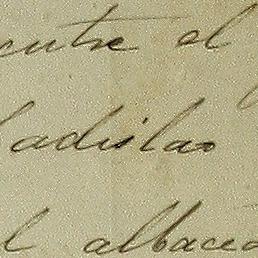 entre el
ladislao
el albacea